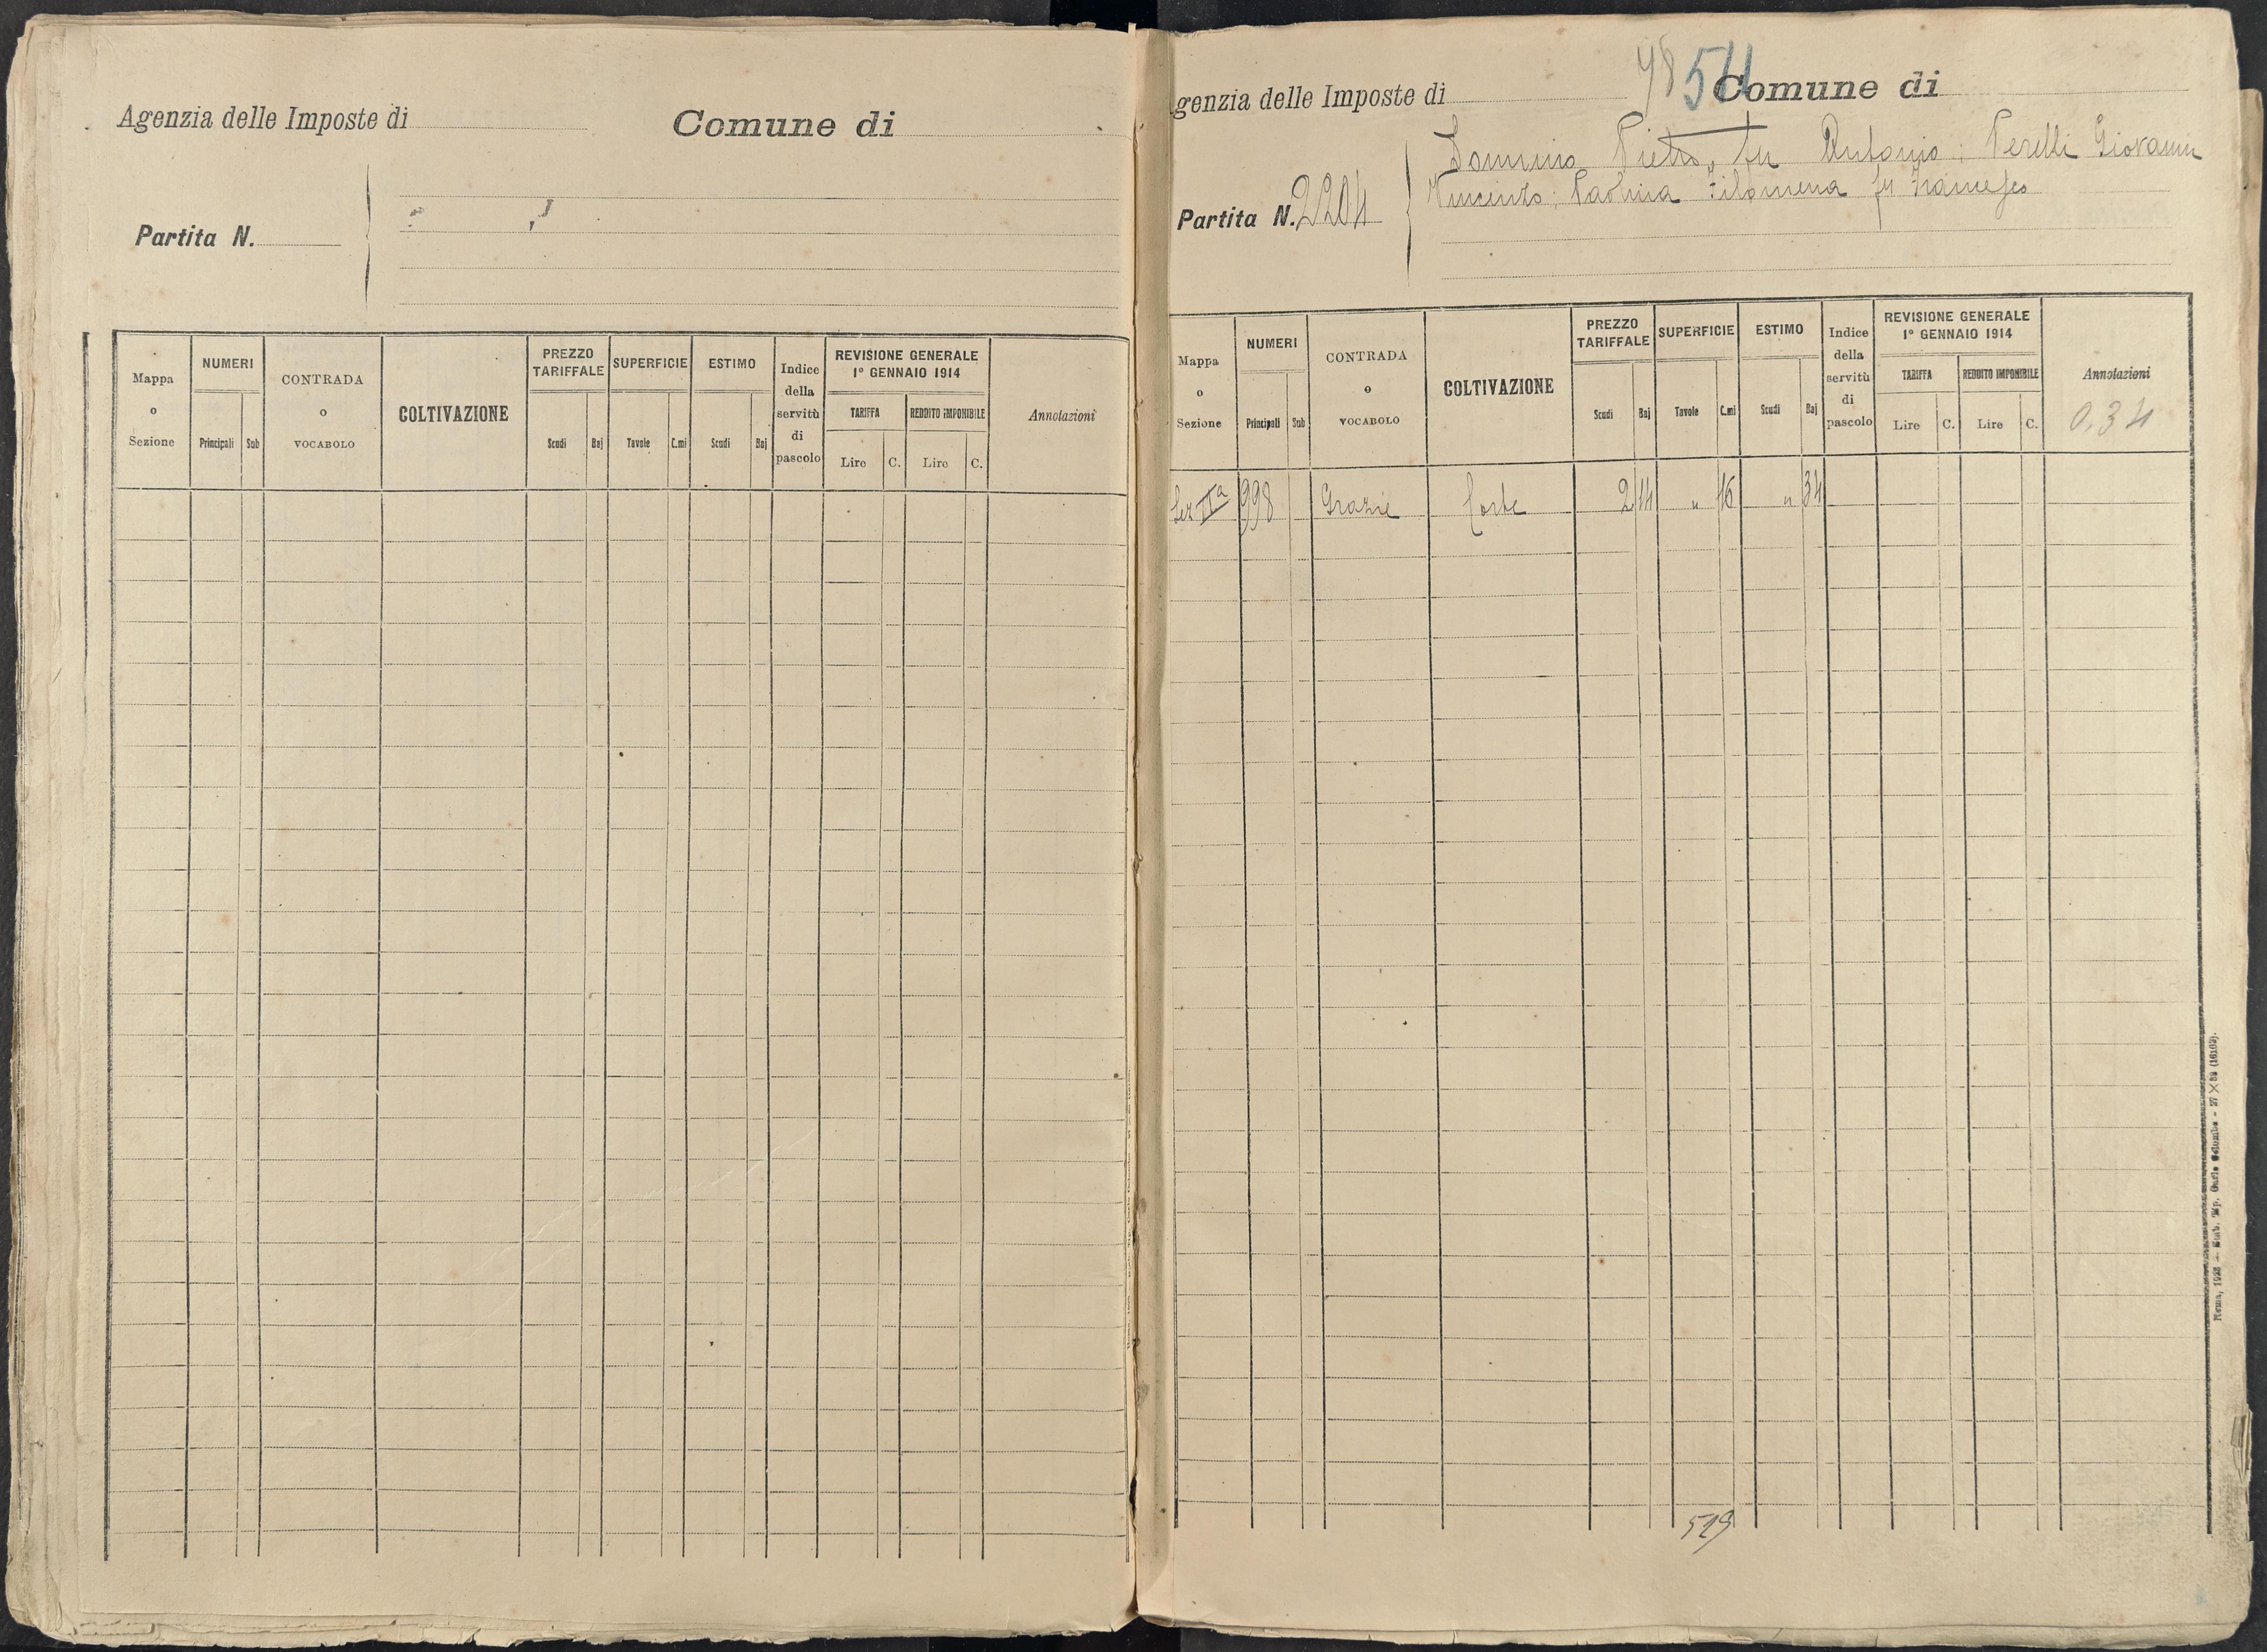 Agenzia delle Imposte di
Comune di
Partita N.
Mappa o Sezione
NUMERI
Principali Sub
CONTRADA o VOCABOLO
COLTIVAZIONE
PREZZO TARIFFALE
Scudi Baj
SUPERFICIE
Tavole C.mi
ESTIMO
Scudi Baj
Indice della servitù di pascolo
REVISIONE GENERALE
1° GENNAIO 1914
TARIFFA
Lire C.
REDDITO IMPONIBILE
Lire C.
Annotazioni
genzia delle Imposte di
54
Comune di
Pietro, fu Antonio; Perelli Giovanni
Vincenzo; Paolina Filomena fu Francesco
Partita N. 2204
Mappa o Sezione
NUMERI
Principali Sub
CONTRADA o VOCABOLO
COLTIVAZIONE
PREZZO TARIFFALE
Scudi Baj
SUPERFICIE
Tavole C.mi
ESTIMO
Scudi Baj
Indice della servitù di pascolo
REVISIONE GENERALE
1° GENNAIO 1914
TARIFFA
Lire C.
REDDITO IMPONIBILE
Lire C.
Annotazioni
0.34
Sez IIa 998 Grazie Corte 2 14 " 16 " 34
519